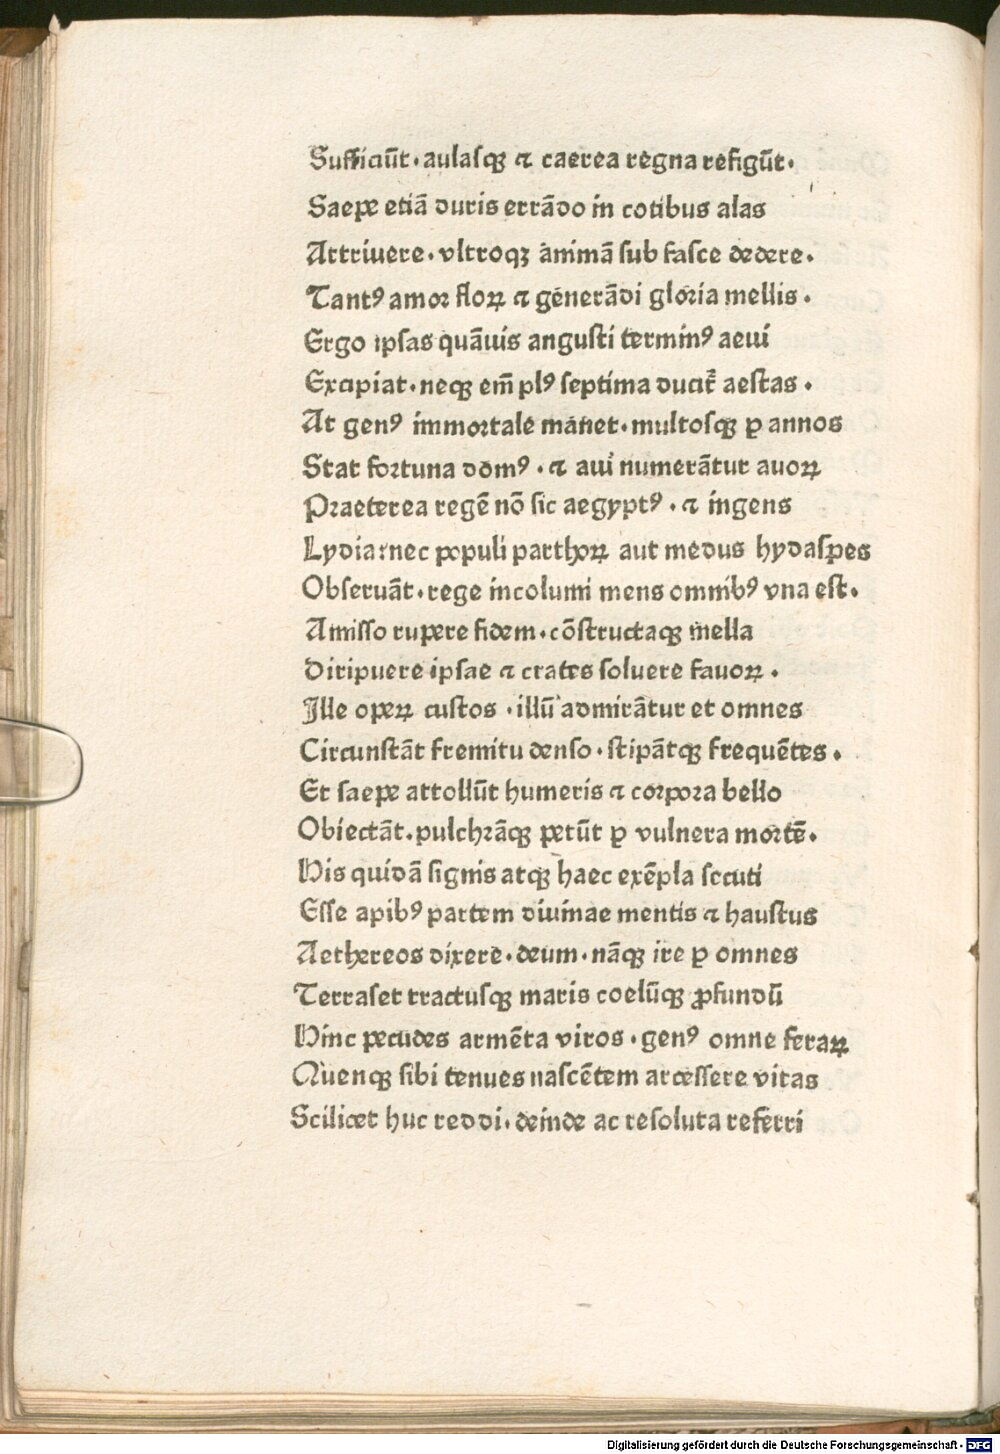 Sufficiūt · aulasqꝫ ⁊ caerea regna refigūt ·
Saepe etiā duris errādo in cotibus alas
Attriuere · vltroqꝫ animā sub fasce dedere ·
Tantꝰ amor floꝝ ⁊ generādi gloria mellis ·
Ergo ipsas quāuis angusti terminꝰ aeui
Excipiat · neqꝫ em̄ plꝰ septima ducit᷑ aestas ·
At genꝰ immortale manet · multosqꝫ ꝑ annos
Stat fortuna domꝰ · ⁊ aui numerātur auoꝝ
Praeterea regē nō sic aegyptꝰ · ⁊ ingens
Lydia: nec populi parthoꝝ aut medus hydaspes
Obseruāt · rege incolumi mens omnibꝰ vna est ·
Amisso rupere fidem · cōstructaqꝫ mella
Diripuere ipsae ⁊ crates soluere fauoꝝ ·
Ille opeꝝ custos · illū admirātur et omnes
Circunstāt fremitu denso · stipātqꝫ frequētes ·
Et saepe attollūt humeris ⁊ corpora bello
Obiectāt · pulchrāqꝫ petūt ꝑ vulnera mortē ·
His quidā signis atqꝫ haec exēpla secuti
Esse apibꝰ partem diuinae mentis ⁊ haustus
Aethereos dixere · deum · nāqꝫ ire ꝑ omnes
Terraset tractusqꝫ maris coelūqꝫ ꝓfundū
Hinc pecudes armēta viros · genꝰ omne feraꝝ
Quenqꝫ sibi tenues nascētem arcessere vitas
Scilicet huc reddi · deinde ac resoluta referri
Digitalisierung gefördert durch die Deutsche Forschungsgemeinschaft - DFG